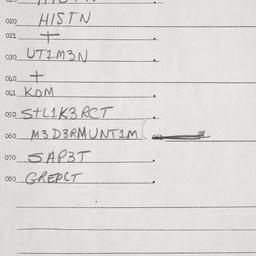 020 HISTN
021 +
030 UT1M3N
040 +
041 KOM
050 S+L1K3RCT
060 M3D3RMUNT1M
070 SAP3T
080 GREPCT